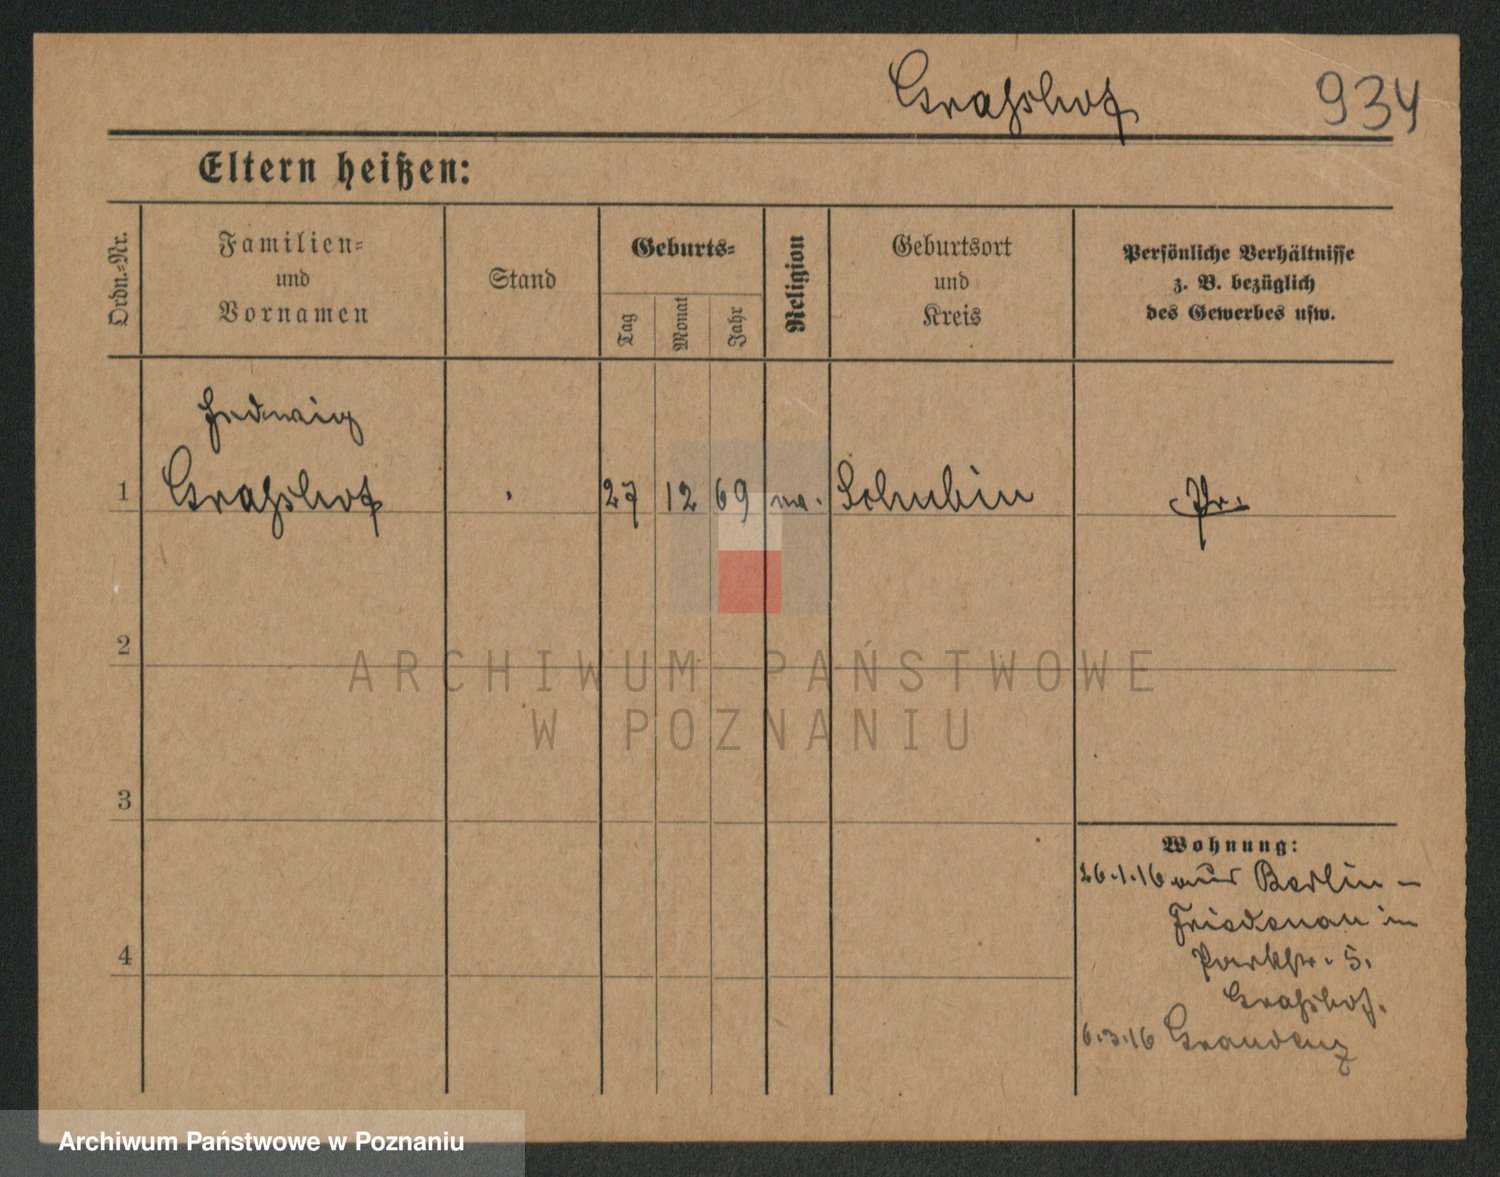 Grasshof 934
Eltern heißen:
Ordn.-Nr.
Familien-
und
Vornamen
Stand
Geburts-
Tag
Monat
Jahr
Religion
Geburtsort
und
Kreis
Persönliche Verhältnisse
z. B. bezüglich
des Gewerbes usw.
Hedwig
1 Grasshof 27 12 69 Schubin Pr.
2
3
4
Wohnung:
26.1.16 aus Berlin-
Friedenau in
Parkstr. 5.
Grasshof.
6.3.16 Graudenz
ARCHIWUM PAŃSTWOWE
W POZNANIU
Archiwum Państwowe w Poznaniu